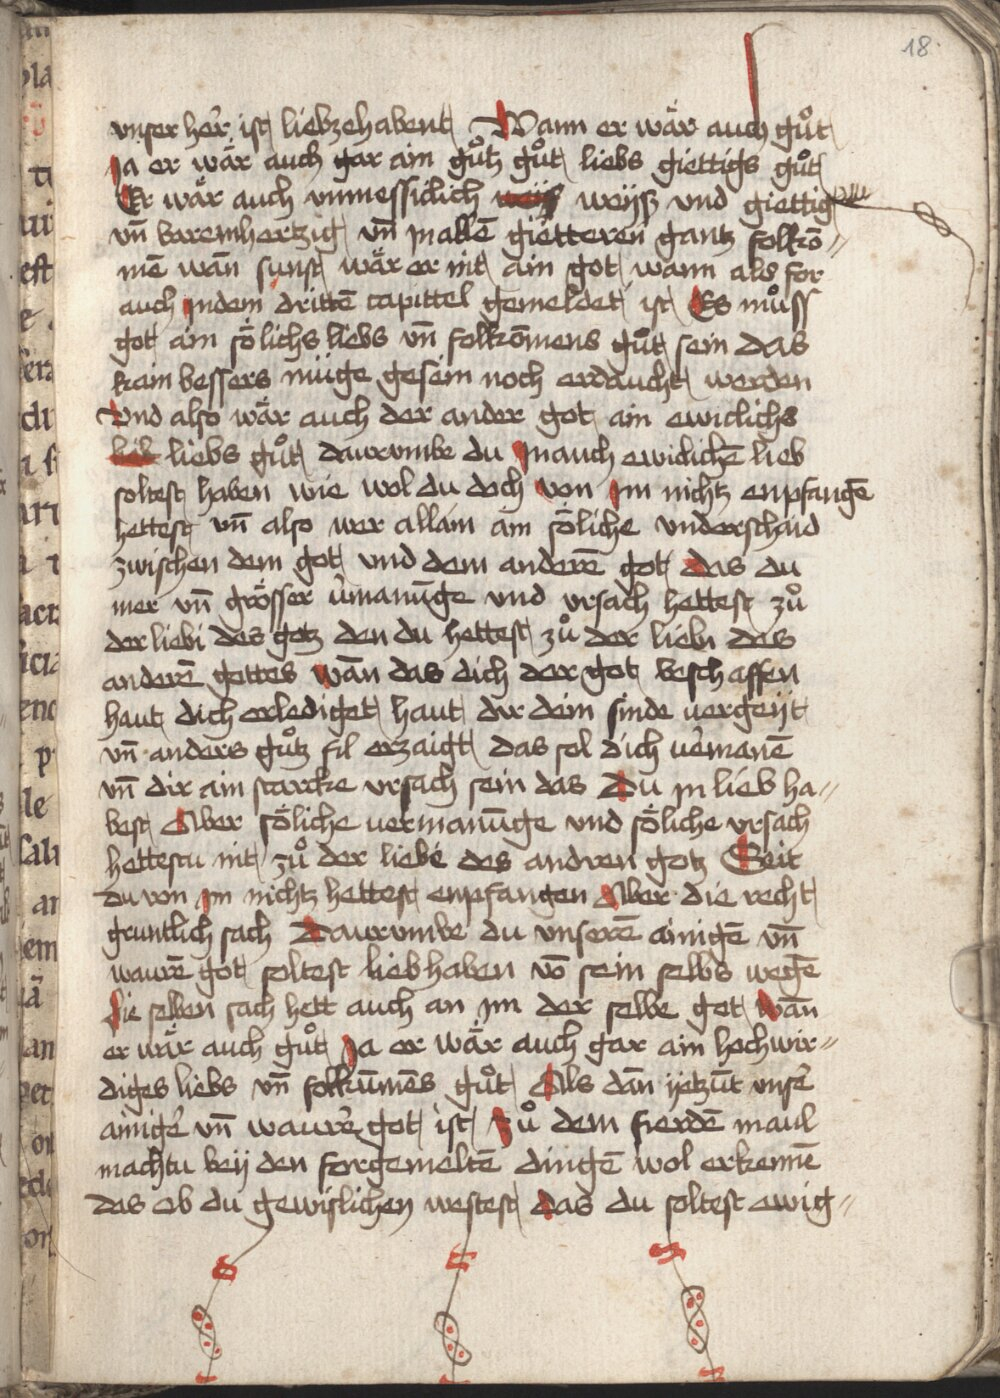 18.
unser her̃ ist liebzehabent Wann er wär auch gůt
Ja er wär auch gar ain gůtz gůt liebs giettigs gůt
Er wär auch unmessiclich weyß und giettig
vn̄ baremhertzig vn̄ in allē gietteren gantz folkō〃
mē wān sunst wär er nit ain got wann als for
auch indem dritten capittel gemeldet ist Es můss
got ain sölichs liebs vn̄ folkōmens gůt sein das
kain bessers müge gesein noch erdaucht werden
Und also wär auch der ander got ain ewiclichs
liebs gůt darumbe du in auch ewiclichē lieb
soltest haben wie wol du doch von im nichtz enpfange
hettest vn̄ also wer allain ain söliche underschaid
zwischen dem got und dem anderē got das du
mer vn̄ grösser v̄manūge und ursach hettest zů
der liebi des gotz den du hettest zů der liebi des
anderē gottes wān das dich der got beschaffen
haut dich erlediget haut dir dein sinde vergeyt
vn̄ anders gůtz fil erzaigt das sol dich v̄manē
vn̄ dir ain starcke ursach sein das Du in lieb ha〃
best Aber söliche vermanūge und söliche ursach
hettestu nit zů der liebe des andren gotz Seit
du von im nichtz hettest enpfangen Aber die recht
gruntlich sach Darumbe du unserē ainigē vn̄
waurē got soltest lieb haben vō sein selbs wegē
Die selben sach hett auch an im der selbe got Wān
er wär auch gůt Ja er wär auch gar ain hochwir〃
diges liebs vn̄ folkūmēs gůt Als dān ytzūt unsē
ainigē vn̄ waurē got ist Zů dem fierdē maul
machtu bey den forgemeltē dingē wol erkennē
das ob du gewislichen westest das du soltest ewig〃